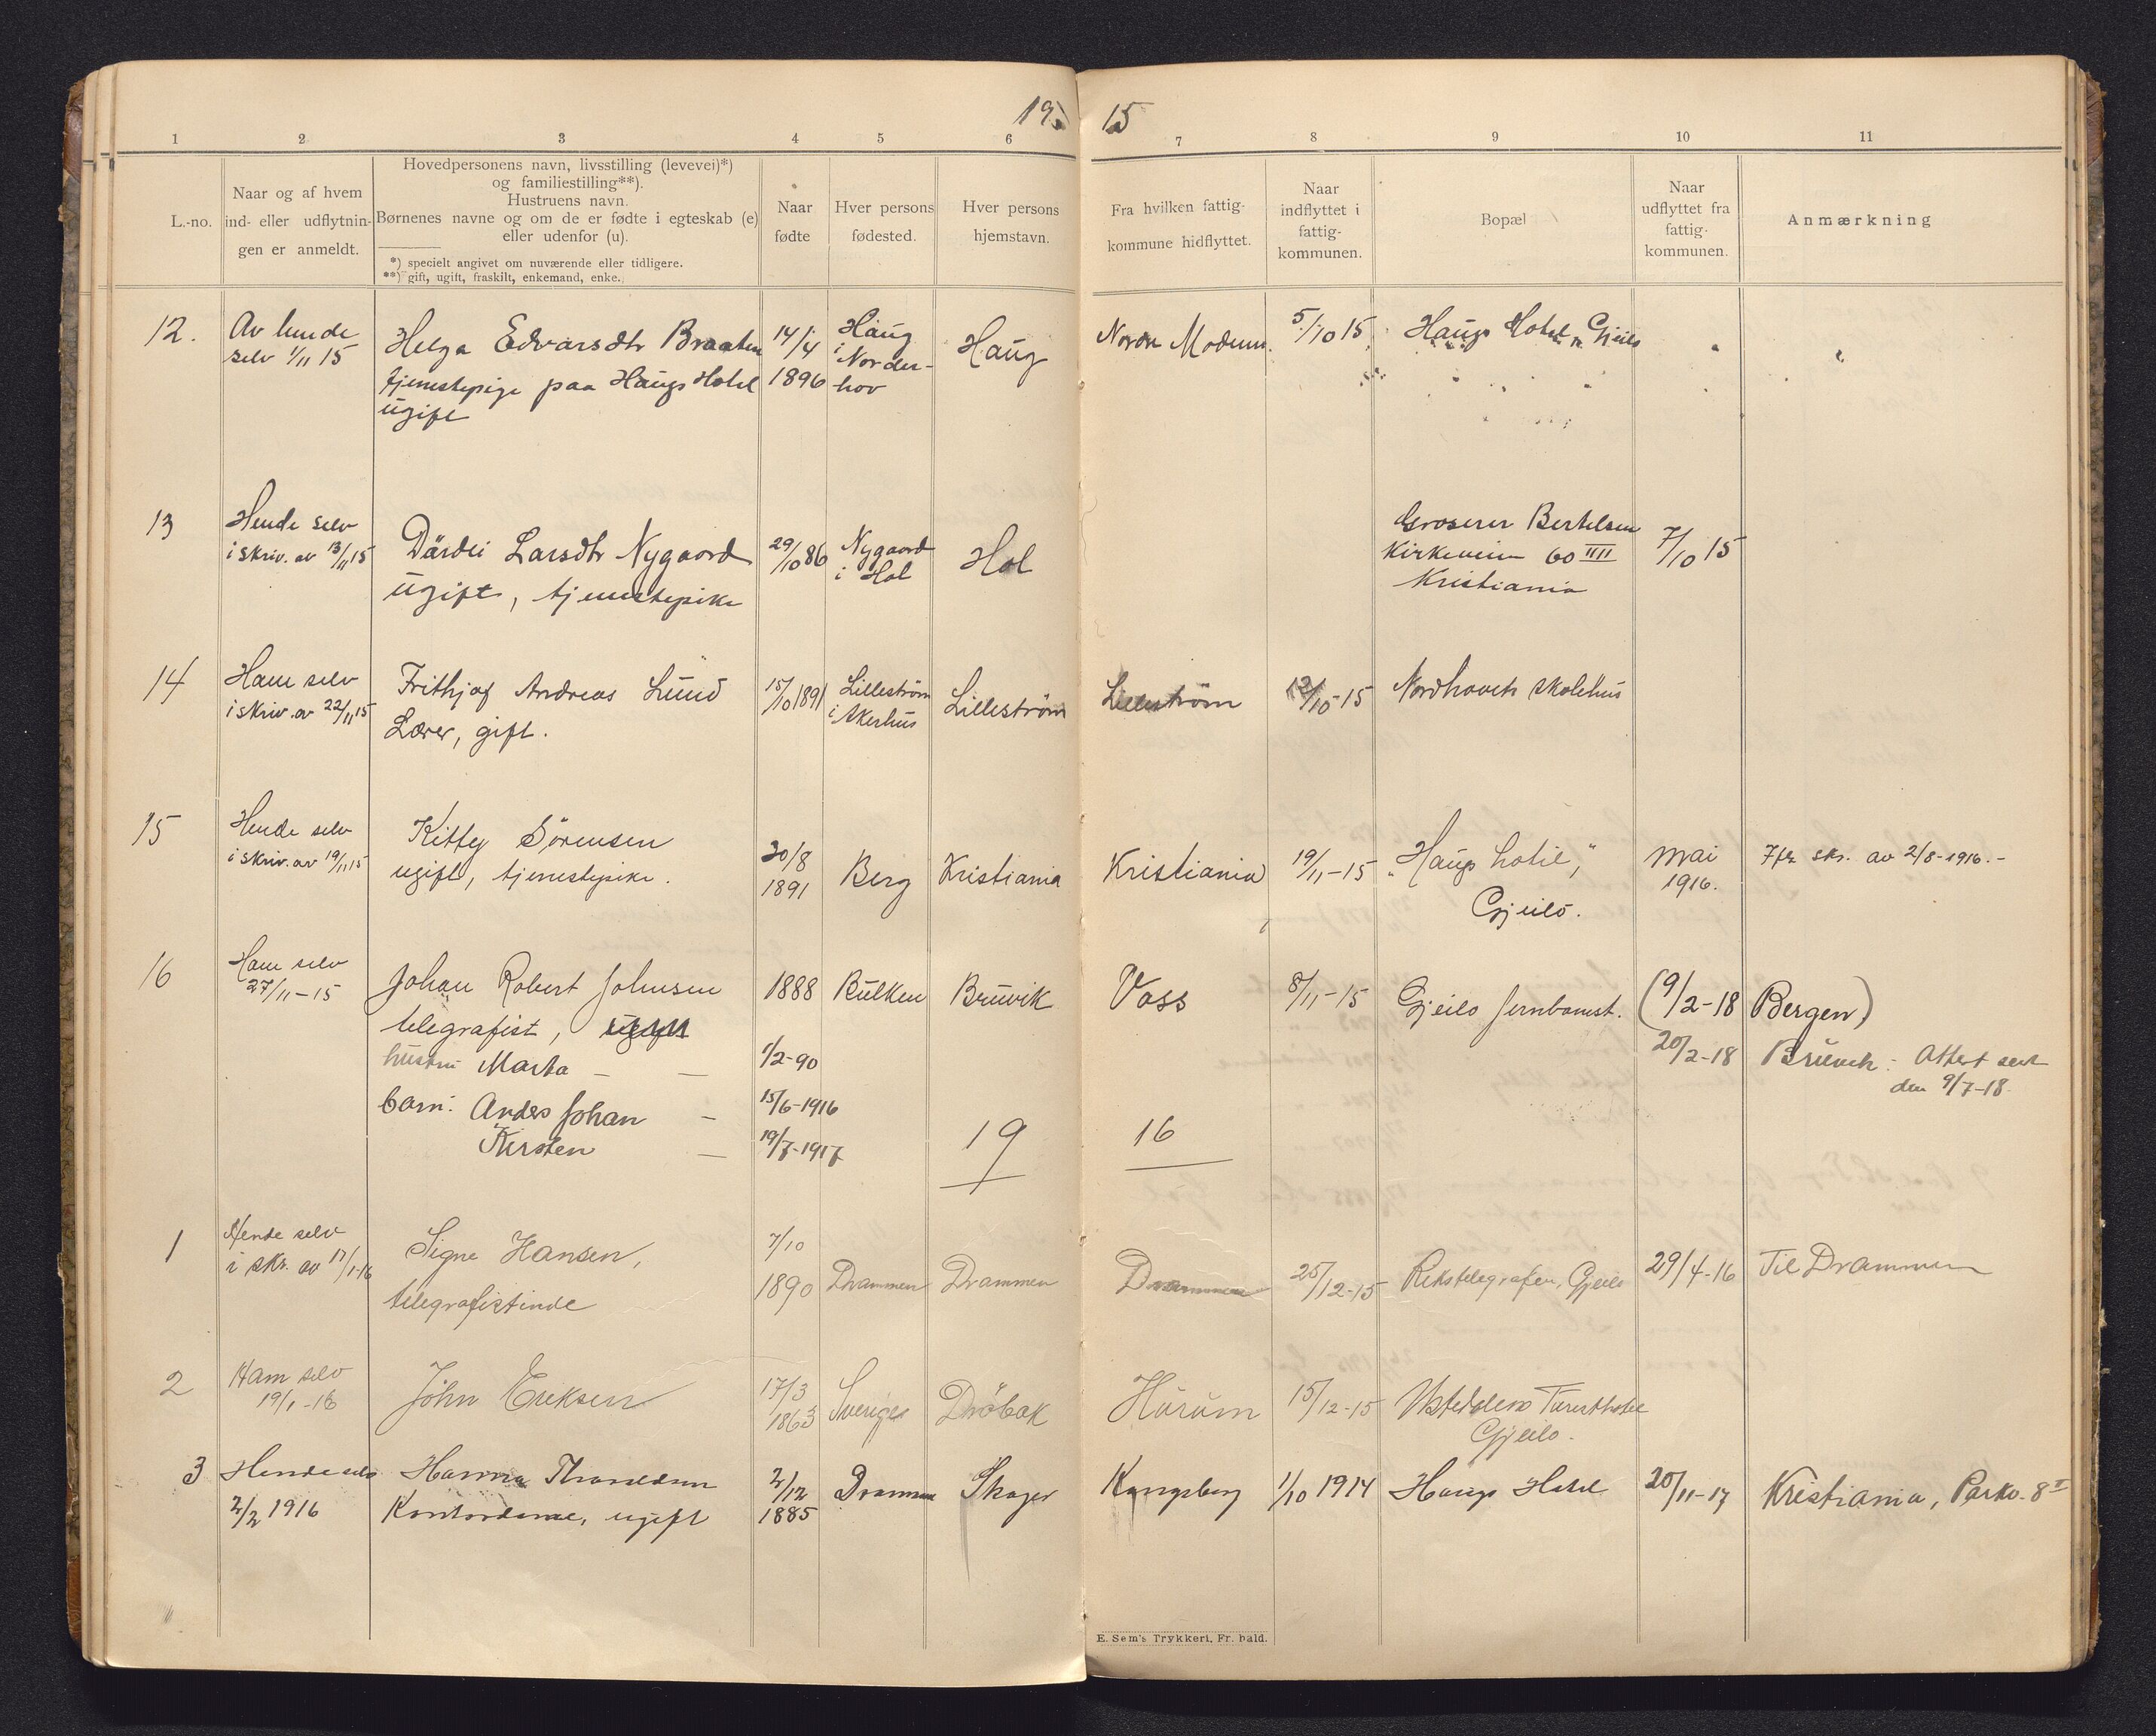 19 15
1 2 3 4 5 6 7 8 9 10 11
L.-no.
Naar og af hvem
ind- eller udflytnin-
gen er anmeldt.
Hovedpersonens navn, livsstilling (levevei)*)
og familiestilling**).
Hustruens navn.
Børnenes navne og om de er fødte i egteskab (e)
eller udenfor (u).
*) specielt angivet om nuværende eller tidligere.
**) gift, ugift, fraskilt, enkemand, enke.
Naar
fødte
Hver persons
fødested.
Hver persons
hjemstavn.
Fra hvilken fattig-
kommune hidflyttet.
Naar
indflyttet i
fattig-
kommunen.
Bopæl
Naar
udflyttet fra
fattig-
kommunen.
Anmærkning
12.
Av hende
selv 1/11 15
Helga Edvarsdtr Braaten
tjenestepige paa Haugs Hotel
ugift
14/4
1896
Haug
i Norder-
hov
Haug
Nordre Modum.
5/10 15
Haugs Hotel, Gjeilo
13
Hende selv
i skriv. av 13/11 15
Dårdei Larsdtr Nygaard
ugift, tjenestepike
29/10 86
Nygaard
i Hol
Hol
Groserer Bertelsen
Kirkeveien 60 IIII
Kristiania
7/10 15
14
Ham selv
i skriv. av 22/11 15
Frithjof Andreas Lund
Lærer, gift.
15/10 1891
Lilleström
i Akershus
Lilleström
Lilleström
12/10-15
Nordhovets skolehus
15
Hende selv
i skriv. av 19/11 15
Kitty Sörensen
ugift, tjenestepike.
30/8
1891
Berg
Kristiania
Kristiania
19/11-15
"Haugs hotel",
Gjeilo.
mai
1916.
Ifr skr. av 2/8-1916.-
16
Ham selv
27/11-15
Johan Robert Johnsen
telegrafist, ugift
hustru Marta — —
barn: Anders Johan —
Kirsten —
1888
1/2-90
15/6-1916
19/7-1917
Bulken
Bruvik
19
Voss
16
8/11-15
Gjeilo Jernbanest.
(9/2-18 Bergen)
20/2-18 Bruvik. Attest sent
den 9/7-18.
1
Hende selv
i skr. av 17/1-16
Signe Hansen,
telegrafistinde
7/10
1890
Drammen
Drammen
Drammen
25/12-15
Rikstelegrafen, Gjeilo
29/4-16
Til Drammen
2
Ham selv
19/1-16
John Eriksen
17/3
1863
Sverige
Dröbak
Hurum
15/12-15
Ustedalens Turisthotel
Gjeilo.
3
Hende selv
2/2 1916
Hanna
Kontordame, ugift
2/12
1885
Drammen
Skoger
Kongsberg
1/10 1914
Haugs Hotel
20/11-17
Kristiania, Parkv. 8 I
E. Sem's Trykkeri, Fr. hald.